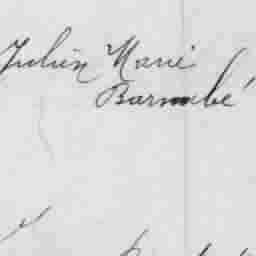 Julien Marie
Barnabé